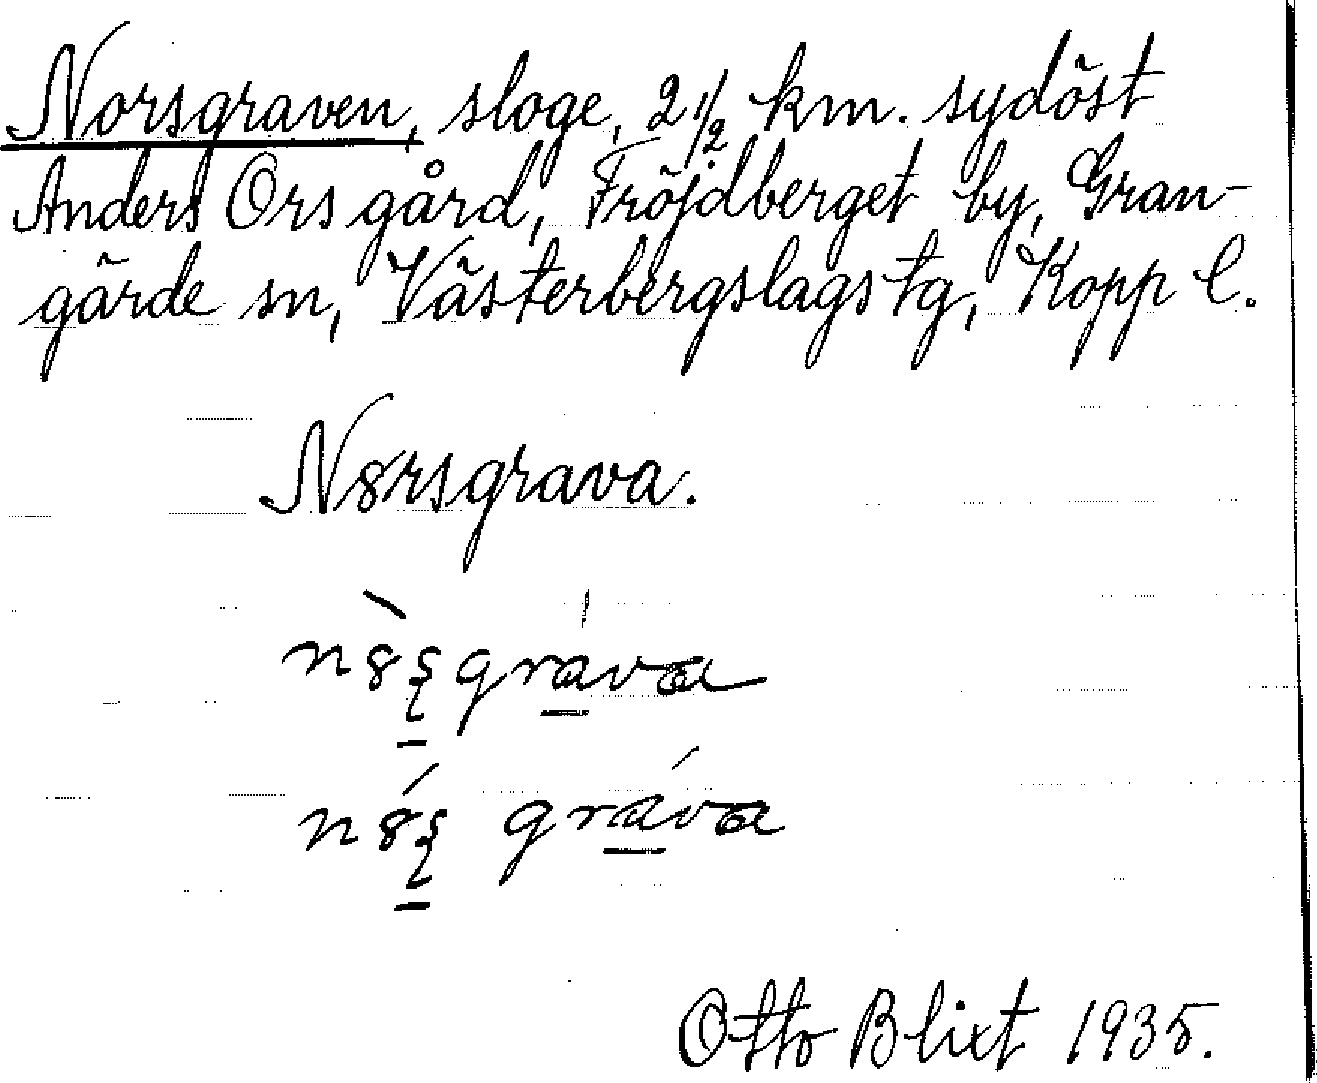 Norsgraven, sloge, 2 1/2 km. sydöst
Anders Ors gård, Fröjdberget by, Gran-
gärde sn, Västerbergslags tg, Kopp l.
N8rsgrava.
Otto Blixt 1935.